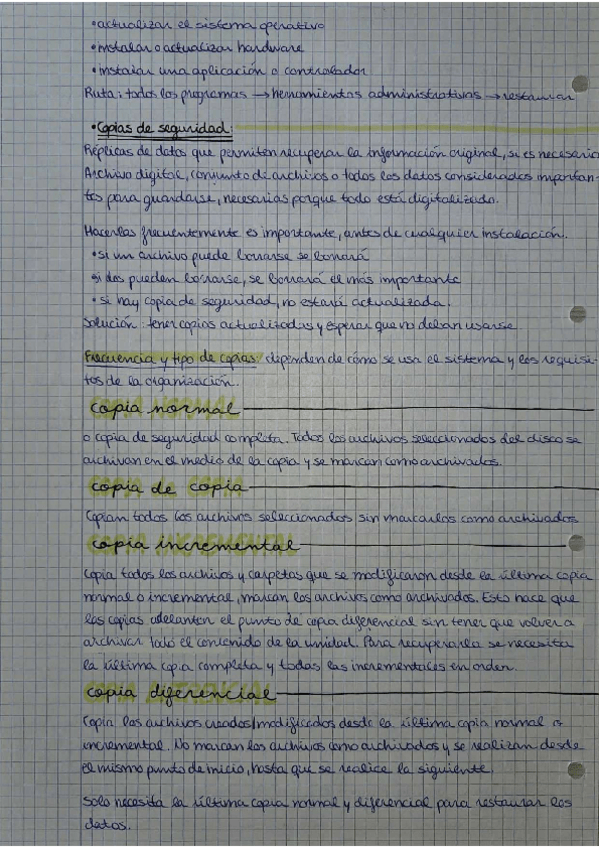 •actualizar el sistema operativo
•instalar o actualizar hardware
•instalar una aplicación o controlador
Ruta: todos los programas → herramientas administrativas → restaurar
•Copias de seguridad:
Réplicas de datos que permiten recuperar la información original, si es necesario
Archivo digital, conjunto de archivos o todos los datos considerados importan-
tes para guardarse, necesarias porque todo está digitalizado.
Hacerlas frecuentemente es importante, antes de cualquier instalación.
•si un archivo puede borrarse se borrará
si dos pueden borrarse, se borrará el más importante
•si hay copia de seguridad, no estará actualizada.
Solución: tener copias actualizadas y esperar que no deban usarse.
Frecuencia y tipo de copias: dependen de cómo se usa el sistema y los requisi-
tos de la organización.
copia normal
o copia de seguridad completa. Todos los archivos seleccionados del disco se
archivan en el medio de la copia y se marcan como archivados.
copia de copia
Copian todos los archivos seleccionados sin marcarlos como archivados
copia incremental
Copia todos los archivos y carpetas que se modificaron desde la última copia
normal o incremental, marcan los archivos como archivados. Esto hace que
las copias adelanten el punto de copia diferencial sin tener que volver a
archivar todo el contenido de la unidad. Para recuperarla se necesita
la última copia completa y todas las incrementales en orden.
copia diferencial
Copia los archivos creados/modificados desde la última copia normal o
incremental. No marcan los archivos como archivados y se realizan desde
el mismo punto de inicio, hasta que se realice la siguiente.
Solo necesita la última copia normal y diferencial para restaurar los
datos.